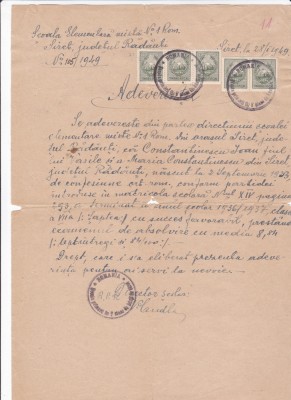 Școala Elementară mixtă № 1 Rom.
Siret, județul Rădăuți
№ 115/1949
Siret, la
1949
Adeverință
Se adeverește din partea direcțiunii școalei
elementare mixte № 1 Rom. din orașul Siret, jude-
țul Rădăuți, că Constantinescu Ioan fiul
lui Vasile și a Maria Constantinescu din Siret
județul Rădăuți, născut la 3 Septemvrie 1923
de confesiune ort. rom., conform
în matricola școlară XIV pagina
250, a terminat în anul școlar 1936/1937, clasa
a VII-a (șaptea) cu succes favorabil, prestând
examenul de absolvire cu media 8,14
Drept, care i s'a eliberat prezenta adeve-
rință pentru a-i servi la nevoie.
Director școlar
ROMANIA